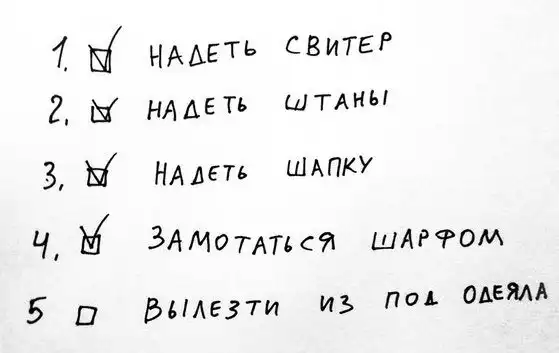 1. ☑ НАДЕТЬ СВИТЕР
2. ☑ НАДЕТЬ ШТАНЫ
3. ☑ НАДЕТЬ ШАПКУ
4. ☑ ЗАМОТАТЬСЯ ШАРФОМ
5 ☐ ВЫЛЕЗТИ ИЗ ПОД ОДЕЯЛА